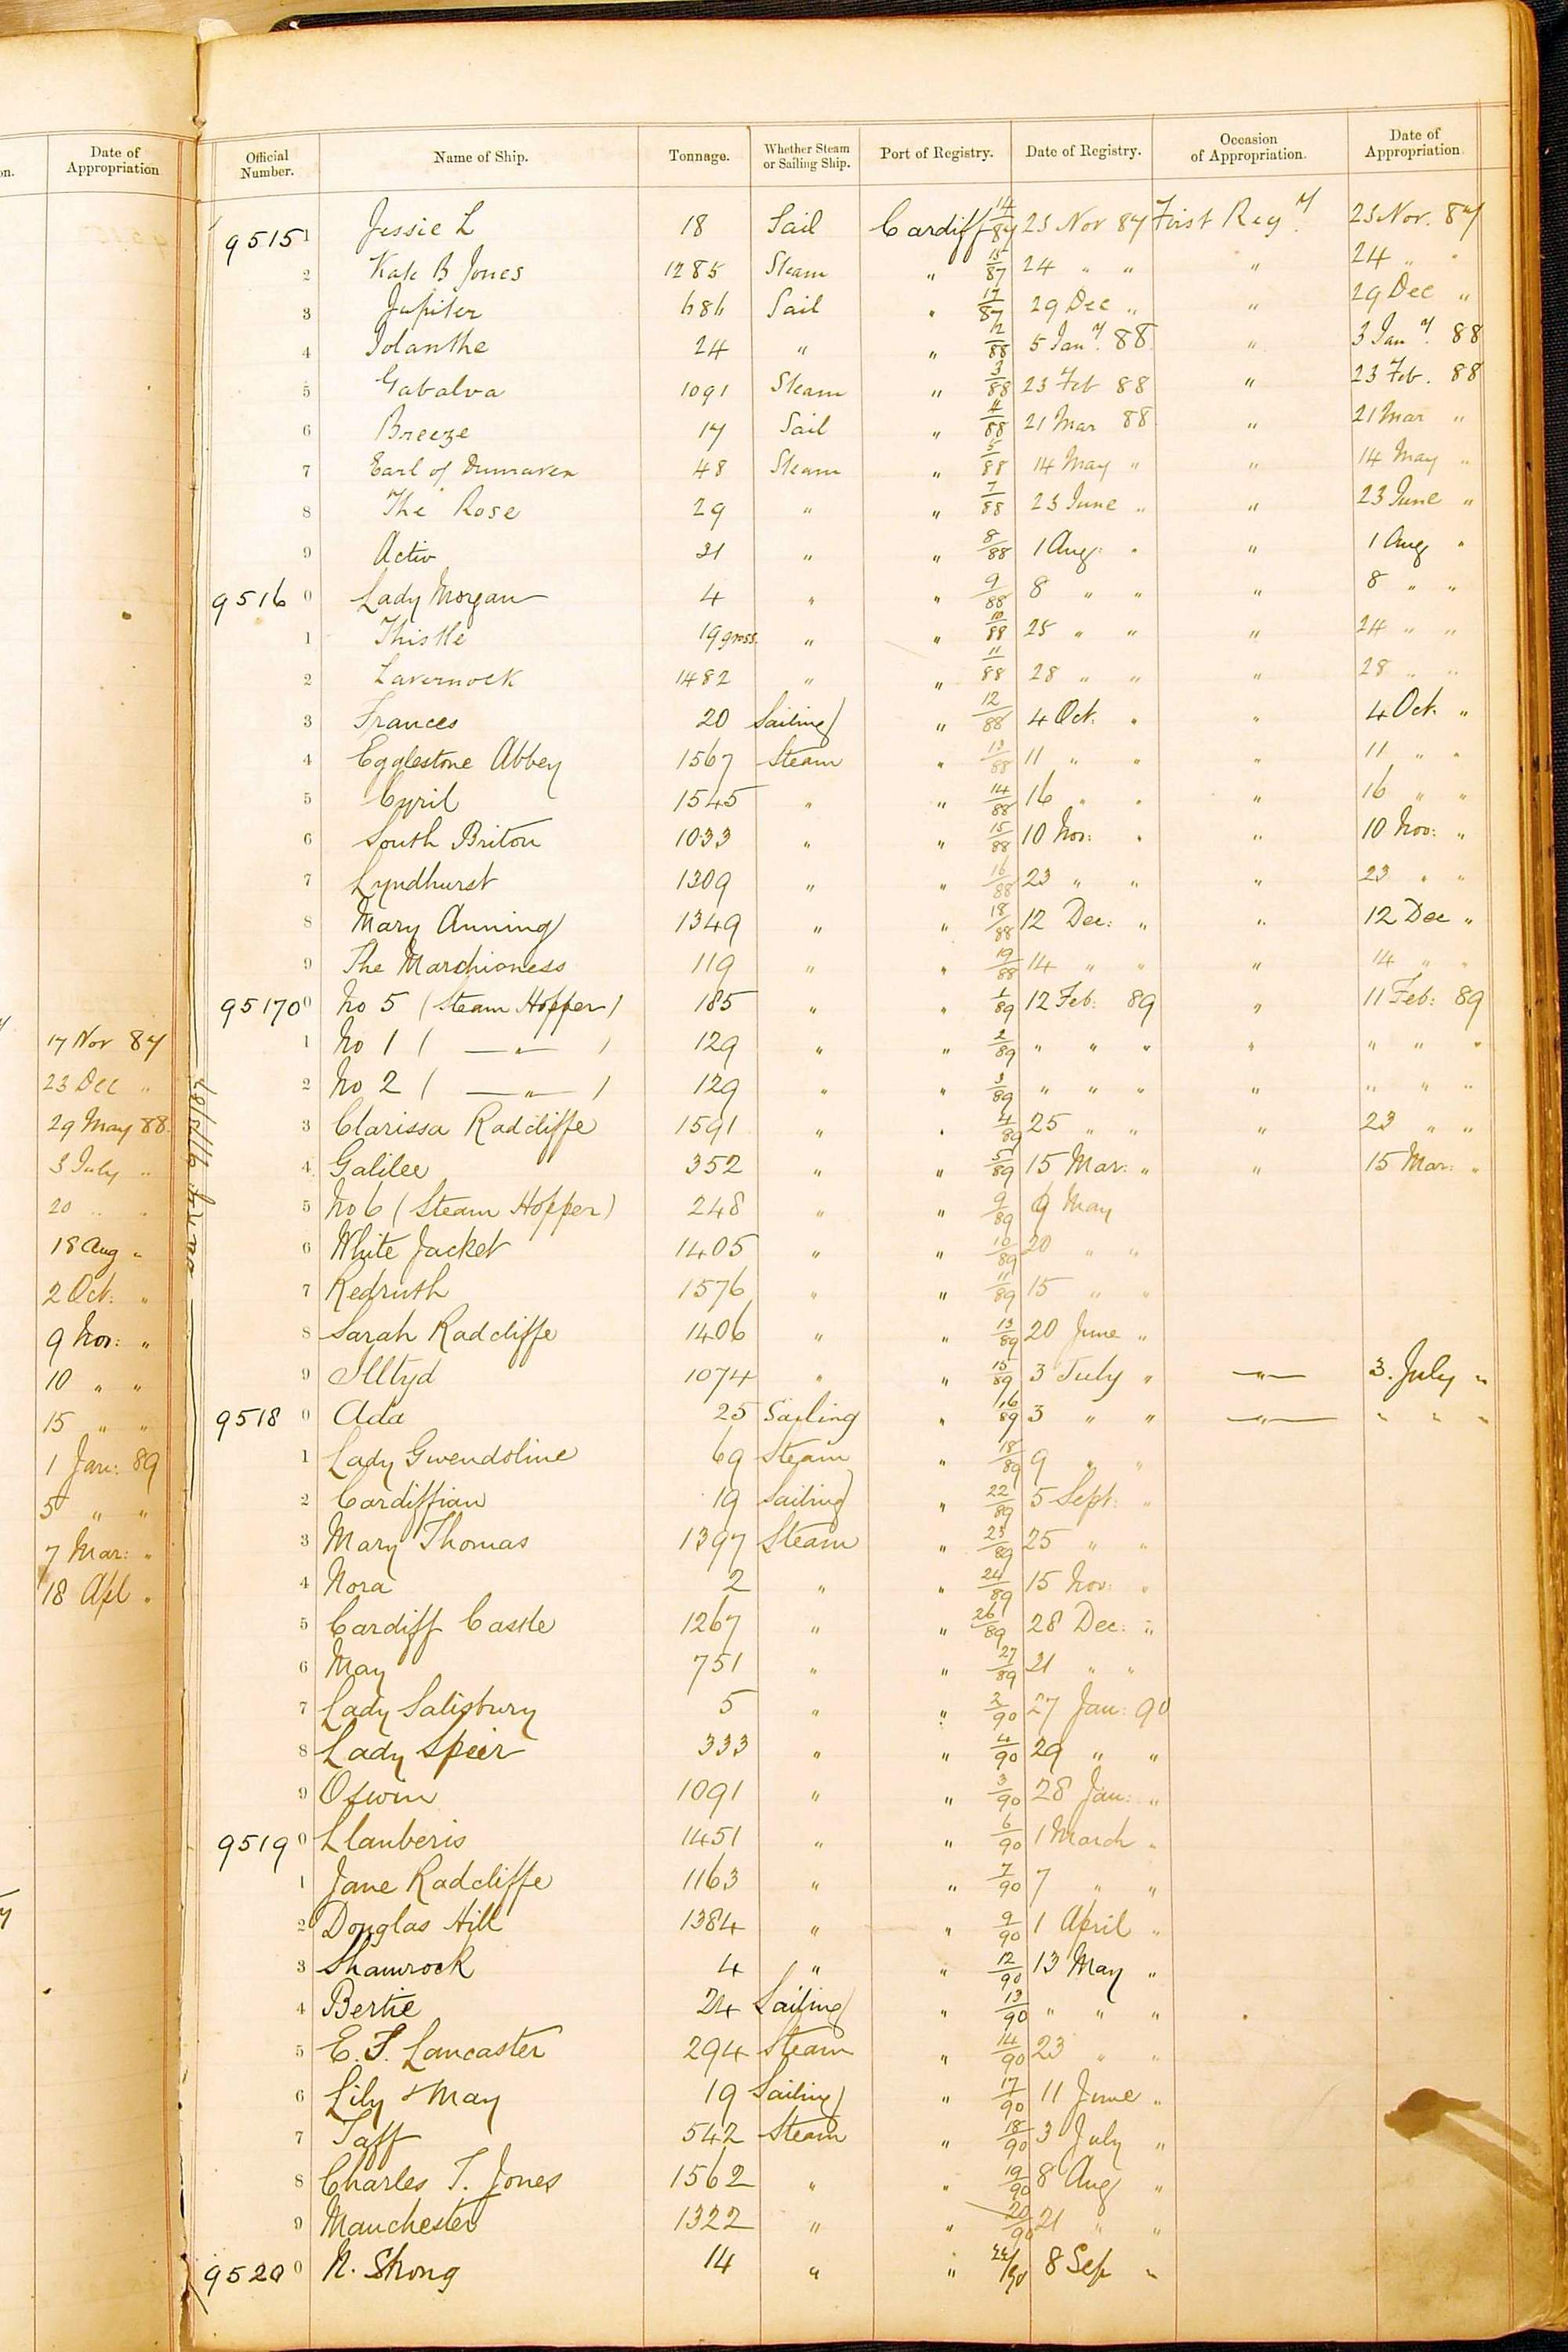 on.
Date of Appropriation
17 Nov 87
23 Dec "
29 May 88
3 July "
20 " "
18 Aug "
2 Oct: "
9 Nov: "
10 " "
15 " "
1 Jan: 89
5 " "
7 Mar: "
18 Apl "
Official Number. Name of Ship. Tonnage. Whether Steam or Sailing Ship. Port of Registry. Date of Registry. Occasion of Appropriation. Date of Appropriation.
9515 1 Jessie L 18 Sail Cardiff 14/87 25 Nov 87 First Regy. 25 Nov. 87
2 Kate B Jones 1285 Steam " 15/87 24 " " " 24 " "
3 Jupiter 686 Sail " 17/87 29 Dec " " 29 Dec "
4 Iolanthe 24 " " /88 5 Jany. 88 " 3 Jany. 88
5 Gabalva 1091 Steam " 3/88 23 Feb 88 " 23 Feb. 88
6 Breeze 17 Sail " 4/88 21 Mar 88 " 21 Mar "
7 Earl of Dunraven 48 Steam " 5/88 14 May " " 14 May "
8 The Rose 29 " " 7/88 23 June " " 23 June "
9 Activ 31 " " 8/88 1 Aug: " " 1 Aug "
9516 0 Lady Morgan 4 " " 9/88 8 " " " 8 " "
1 Thistle 19 gross. " " 10/88 25 " " " 24 " "
2 Lavernock 1482 " " 11/88 28 " " " 28 " "
3 Frances 20 Sailing " 12/88 4 Oct. " " 4 Oct. "
4 Egglestone Abbey 1567 Steam " 13/88 11 " " " 11 " "
5 Cyril 1545 " " 14/88 16 " " " 16 " "
6 South Briton 1033 " " 15/88 10 Nov: " " 10 Nov: "
7 Lyndhurst 1309 " " 16/88 23 " " " 23 " "
8 Mary Anning 1349 " " 18/88 12 Dec: " " 12 Dec "
9 The Marchioness 119 " " 19/88 14 " " " 14 " "
95170 0 No 5 (Steam Hopper) 185 " " 1/89 12 Feb: 89 " 11 Feb: 89
1 No 1 ( — " — ) 129 " " 2/89 " " " " " " "
2 No 2 ( — " — ) 129 " " 3/89 " " " " " " "
3 Clarissa Radcliffe 1591 " " 4/89 25 " " " 23 " "
4 Galilee 352 " " 5/89 15 Mar: " " 15 Mar: "
5 No 6 (Steam Hopper) 248 " " 9/89 9 May
6 White Jacket 1405 " " 10/89 20 " "
7 Redruth 1576 " " 11/89 15 " "
8 Sarah Radcliffe 1406 " " 13/89 20 June "
9 Illtyd 1074 " " 15/89 3 July " — " — 3. July "
9518 0 Ada 25 Sailing " 16/89 3 " " — " — " " "
1 Lady Gwendoline 69 Steam " 18/89 9 " "
2 Cardiffian 19 Sailing " 22/89 5 Sept: "
3 Mary Thomas 1397 Steam " 23/89 25 " "
4 Nora 2 " " 24/89 15 Nov: "
5 Cardiff Castle 1267 " " 26/89 28 Dec: "
6 May 751 " " 27/89 21 " "
7 Lady Salisbury 5 " " 2/90 27 Jan: 90
8 Lady Speir 333 " " 4/90 29 " "
9 Oswin 1091 " " 3/90 28 Jan: "
9519 0 Llanberis 1451 " " 6/90 1 March "
1 Jane Radcliffe 1163 " " 7/90 7 " "
2 Douglas Hill 1384 " " 9/90 1 April "
3 Shamrock 4 " " 12/90 13 May "
4 Bertie 24 Sailing " 13/90 " " "
5 E. F. Lancaster 294 Steam " 14/90 23 " "
6 Lily & May 19 Sailing " 17/90 11 June "
7 Taff 542 Steam " 18/90 3 July "
8 Charles T. Jones 1562 " " 19/90 8 Aug "
9 Manchester 1322 " " 20/90 21 " "
9520 0 N. Strong 14 " " /90 8 Sep "